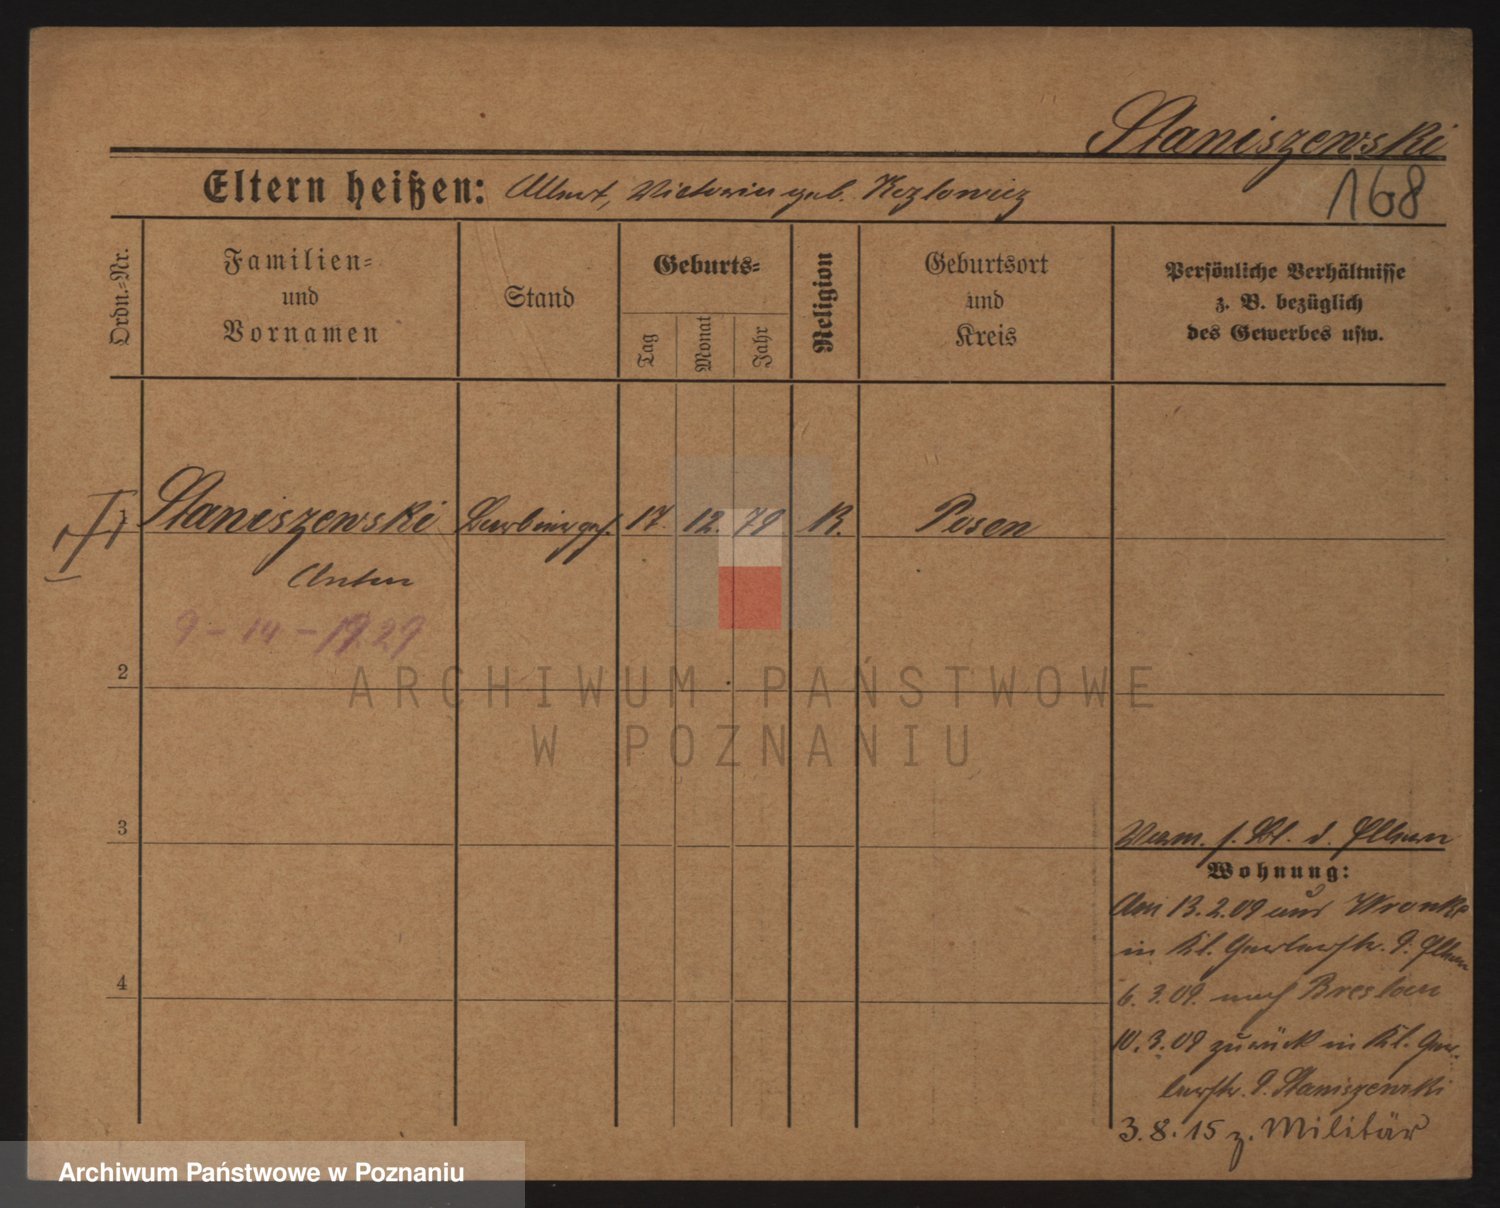 Staniszewski
Eltern heißen: Albert, Victoria geb. Kozlowicz
168
Ordn.-Nr.
Familien-
und
Vornamen
Stand
Geburts-
Tag
Monat
Jahr
Religion
Geburtsort
und
Kreis
Persönliche Verhältnisse
z. B. bezüglich
des Gewerbes usw.
1
Staniszewski
Barbiergeh.
17.
12.
79
K.
Posen
Anton
9-14-1929
2
ARCHIWUM PAŃSTWOWE
W POZNANIU
3
Verm. s. Bl. d. Eltern
Wohnung:
Am 13.2.09 aus Wronke
in Kl. Gerberstr. 9. Eltern
6.3.09. nach Breslau
10.3.09 zurück in Kl. Ger-
berstr. 9. Staniszewski
3.8.15 z. Militär
4
Archiwum Państwowe w Poznaniu